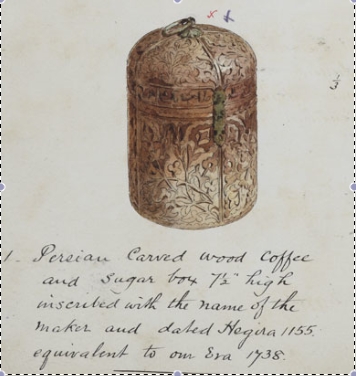 1. Persian Carved wood Coffee
and Sugar box 7½" high
inscribed with the name of the
maker and dated Hegira 1155.
equivalent to our Era 1738.